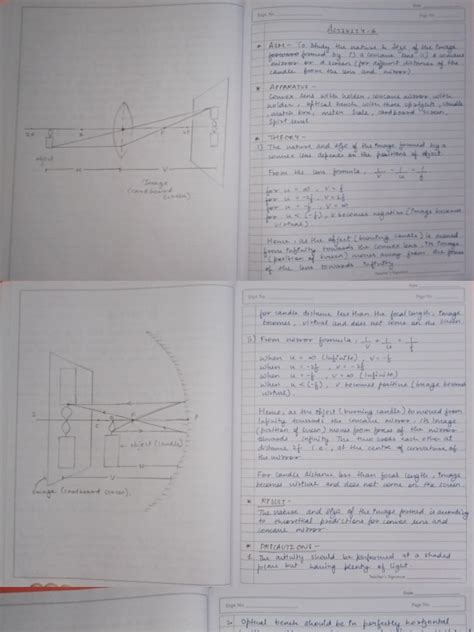 Date
Expt. No.
Page No.
ACTIVITY-6
* AIM - To study the nature & size of the image
formed by i) a convex lens ii) a concave
mirror on a screen (for different distances of the
candle from the lens and mirror)
* APPARATUS -
Convex lens with holder, concave mirror with
holder, optical bench with three uprights, candle,
match box, meter scale, cardboard screen,
spirit level
* THEORY -
i) The nature and size of the image formed by a
convex lens depends on the positions of object.
From the lens formula, 1/v - 1/u = 1/f
for u = ∞, v = f
for u = -2f, v = 2f
for u = -f, v = ∞
for u < (-f), v becomes negative (Image becomes
virtual)
Hence, as the object (burning candle) is moved
from infinity towards the convex lens, its image
(position of screen) moves away from the focus
of the lens towards infinity.
Teacher's Signature
object
Image
(cardboard
screen)
Date
Expt. No.
Page No.
for candle distance less than the focal length, image
becomes virtual and does not come on the screen.
ii) From mirror formula, 1/v + 1/u = 1/f
When u = ∞ (infinite), v = -f
When u = -2f, v = -2f
When u = -f, v = ∞ (infinite)
When u < (-f), v becomes positive (image becomes
virtual).
Hence, as the object (burning candle) is moved from
infinity towards the concave mirror, its image
(position of screen) moves from focus of the mirror
towards infinity. The two cross each other at
distance 2f i.e., at the centre of curvature of
the mirror.
For candle distance less than focal length, image
becomes virtual and does not come on the screen.
* RESULT -
The nature and size of the image formed is according
to theoretical predictions for convex lens and
concave mirror
* PRECAUTIONS -
1. The activity should be performed at a shaded
place but having plenty of light
Teacher's Signature
object (candle)
Image (cardboard screen)
Date
Expt. No.
Page No.
2. Optical bench should be in perfectly horizontal